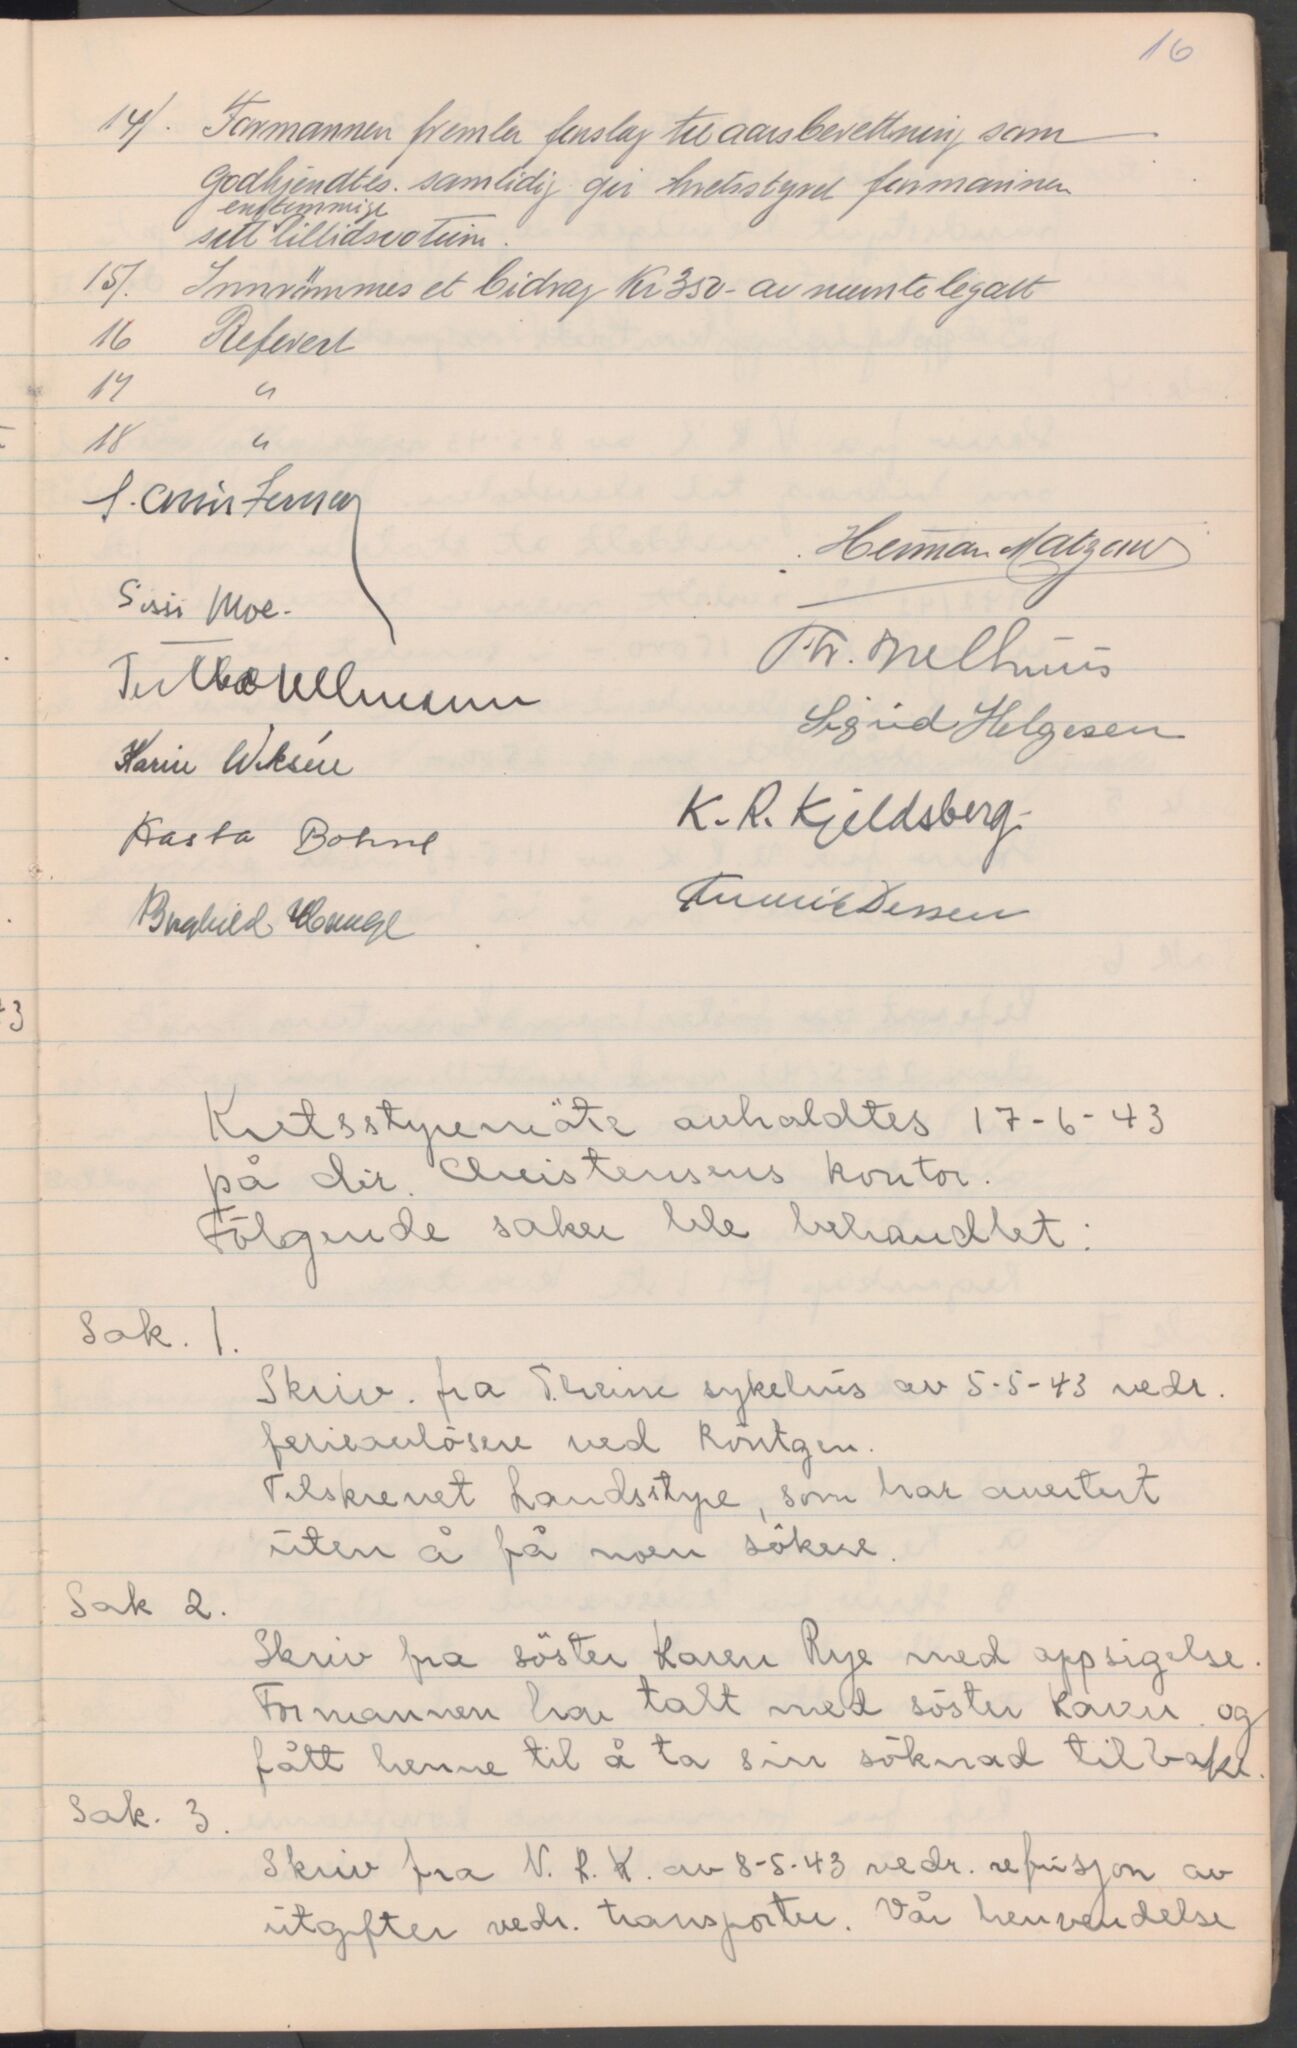 16
14/. Formannen fremla forslag til aarsberettning som
godkjendtes. samtidig gir kretsstyret formannen
enstemmige
sitt tillidsvotum.
15/. Innrömmes et bidrag Kr 350- av legatt
16 Referert
17 "
18 "
Herman
Sissi Moe.
Th. Melhuus
Sigrid Helgesen
Karin Wiksén
K. R. Kjeldsberg.
Kasta Bohne
Borghild Hauge
Kretsstyremöte avholdtes 17-6-43
på dir. Christensens kontor.
Fölgende saker ble behandlet:
Sak. 1.
Skriv. fra T.heim sykehus av 5-5-43 vedr.
ferieavlösere ved Röntgen.
Tilskrevet Landsstyre, som har avertert
uten å få noen sökere.
Sak 2.
Skriv fra söster Karen Rye med oppsigelse.
Formannen har talt med söster Karen og
fått henne til å ta sin söknad tilbake.
Sak. 3.
Skriv fra N. R. K. av 8-5-43 vedr. refusjon av
utgifter vedr. transporter. Vår henvendelse